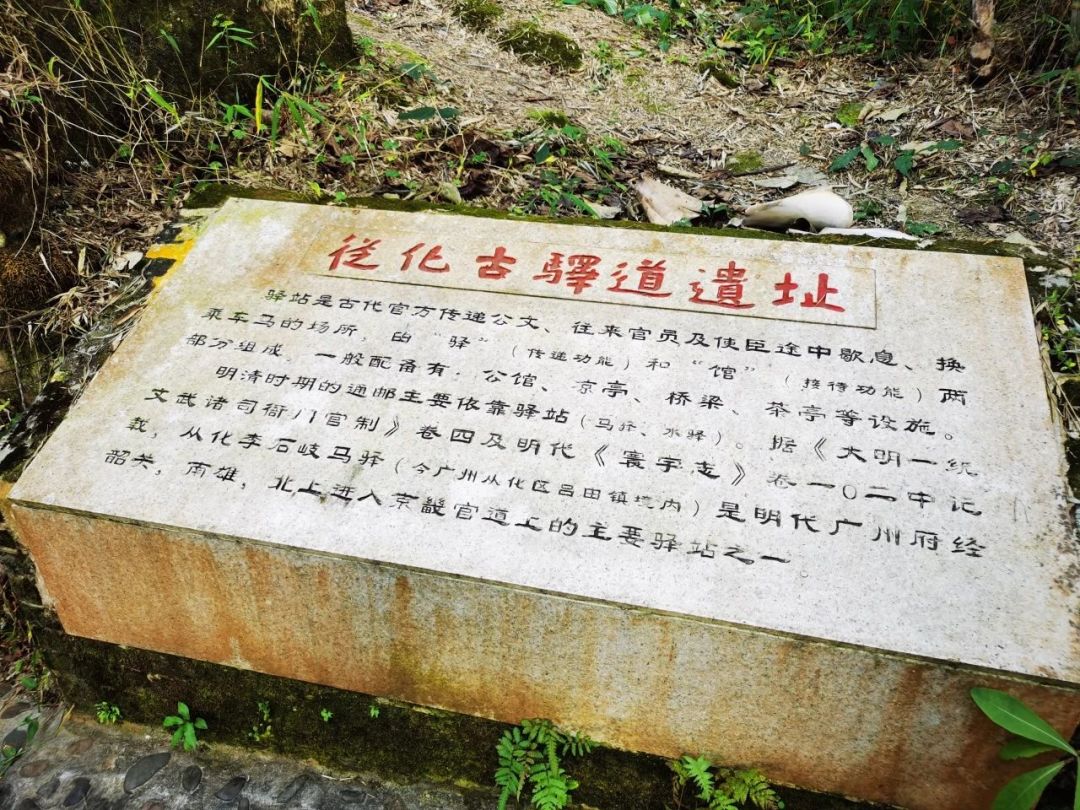 從化古驛道遺址
驿站是古代官方传递公文、往来官员及使臣途中歇息、换
乘车马的场所，由“驿”（传递功能）和“馆”（接待功能）两
部分组成，一般配备有：公馆、凉亭、桥梁、茶亭等设施。
明清时期的通邮主要依靠驿站（马驿、水驿）。据《大明一统
文武诸司衙门官制》卷四及明代《寰宇志》卷一〇二中记
载，从化李石岐马驿（今广州从化区吕田镇境内）是明代广州府经
韶关，南雄，北上进入京畿官道上的主要驿站之一